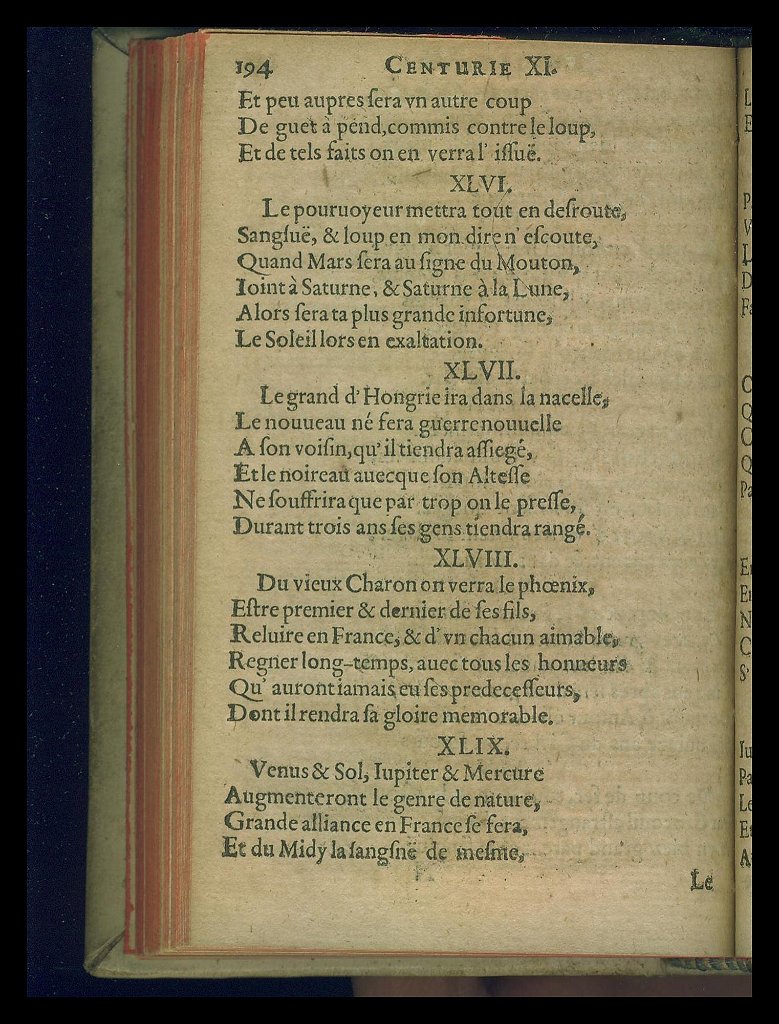 194 CENTURIE XI.
Et peu aupres ſera vn autre coup
De guet à pend, commis contre le loup,
Et de tels faits on en verra l' iſſuë.
XLVI.
Le pouruoyeur mettra tout en deſroute,
Sangſuë, & loup en mon dire n' eſcoute,
Quand Mars ſera au ſigne du Mouton,
Ioint à Saturne, & Saturne à la Lune,
Alors ſera ta plus grande infortune,
Le Soleil lors en exaltation.
XLVII.
Le grand d' Hongrie ira dans la nacelle,
Le nouueau né fera guerre nouuelle
A ſon voiſin, qu' il tiendra aſſiegé,
Et le noireau auecque ſon Alteſſe
Ne ſouffrira que par trop on le preſſe,
Durant trois ans ſes gens tiendra rangé.
XLVIII.
Du vieux Charon on verra le phœnix,
Eſtre premier & dernier de ſes fils,
Reluire en France, & d' vn chacun aimable,
Regner long-temps, auec tous les honneurs
Qu' auront iamais eu ſes predeceſſeurs,
Dont il rendra ſa gloire memorable.
XLIX.
Venus & Sol, Iupiter & Mercure
Augmenteront le genre de nature,
Grande alliance en France ſe fera,
Et du Midy la ſangſnë de meſme,
Le